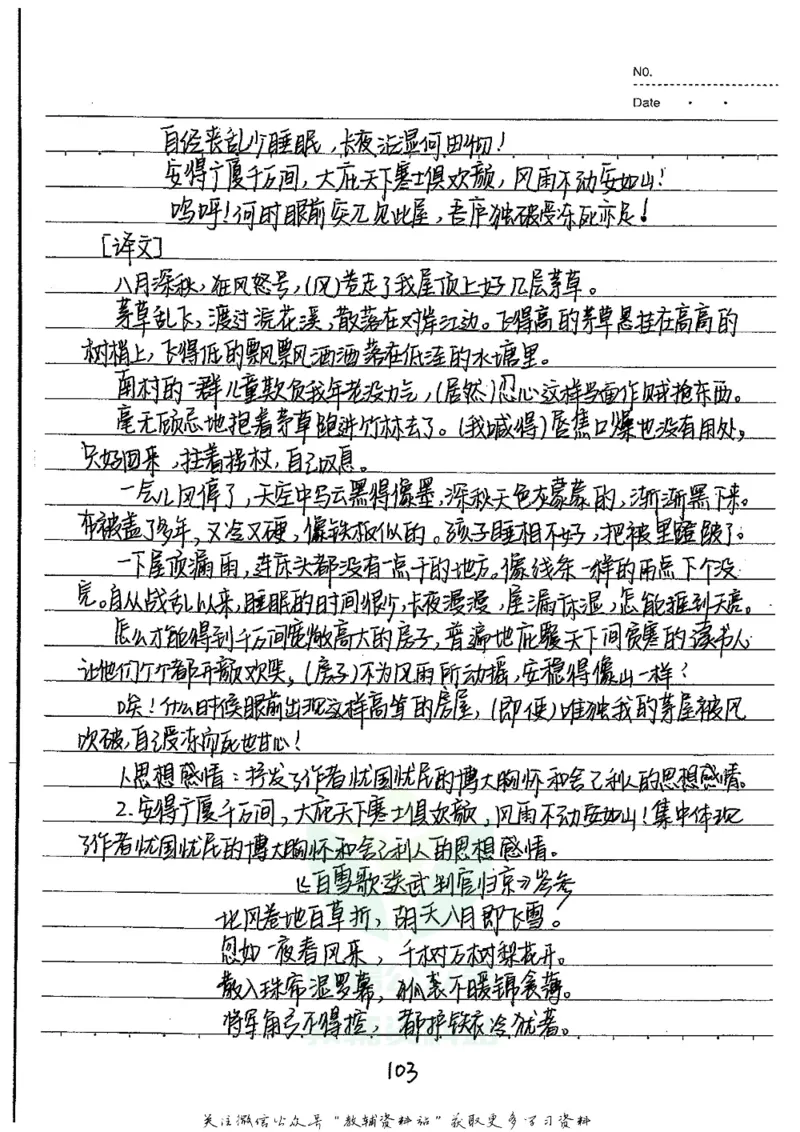 No.
Date
自经丧乱少睡眠，长夜沾湿何由彻！
安得广厦千万间，大庇天下寒士俱欢颜，风雨不动安如山！
呜呼！何时眼前突兀见此屋，吾庐独破受冻死亦足！
[译文]
八月深秋，狂风怒号，(风)卷走了我屋顶上好几层茅草。
茅草乱飞，渡过浣花溪，散落在对岸江边。飞得高的茅草悬挂在高高的
树梢上，飞得低的飘飘洒洒落在低洼的水塘里。
南村的一群儿童欺负我年老没力气，(居然)忍心这样当面作贼抢东西。
毫无顾忌地抱着茅草跑进竹林去了。(我喊得)唇焦口燥也没有用处，
只好回来，拄着拐杖，自己叹息。
一会儿风停了，天空中乌云黑得像墨，深秋天色灰蒙蒙的，渐渐黑下来。
布被盖了多年，又冷又硬，像铁板似的。孩子睡相不好，把被里蹬破了。
一下屋顶漏雨，连床头都没有一点干的地方。像线条一样的雨点下个没
完。自从战乱以来，睡眠的时间很少，长夜漫漫，屋漏床湿，怎能挨到天亮。
怎么才能得到千万间宽敞高大的房子，普遍地庇覆天下间贫寒的读书人
让他们个个都开颜欢笑，(房子)不为风雨所动摇，安稳得像山一样？
唉！什么时候眼前出现这样高耸的房屋，(即使)唯独我的茅屋被风
吹破，自己受冻而死也甘心！
1.思想感情：抒发了作者忧国忧民的博大胸怀和舍己利人的思想感情。
2.安得广厦千万间，大庇天下寒士俱欢颜，风雨不动安如山！集中体现
了作者忧国忧民的博大胸怀和舍己利人的思想感情。
《白雪歌送武判官归京》岑参
北风卷地百草折，胡天八月即飞雪。
忽如一夜春风来，千树万树梨花开。
散入珠帘湿罗幕，狐裘不暖锦衾薄。
将军角弓不得控，都护铁衣冷犹着。
103
关注微信公众号"教辅资料站"获取更多学习资料